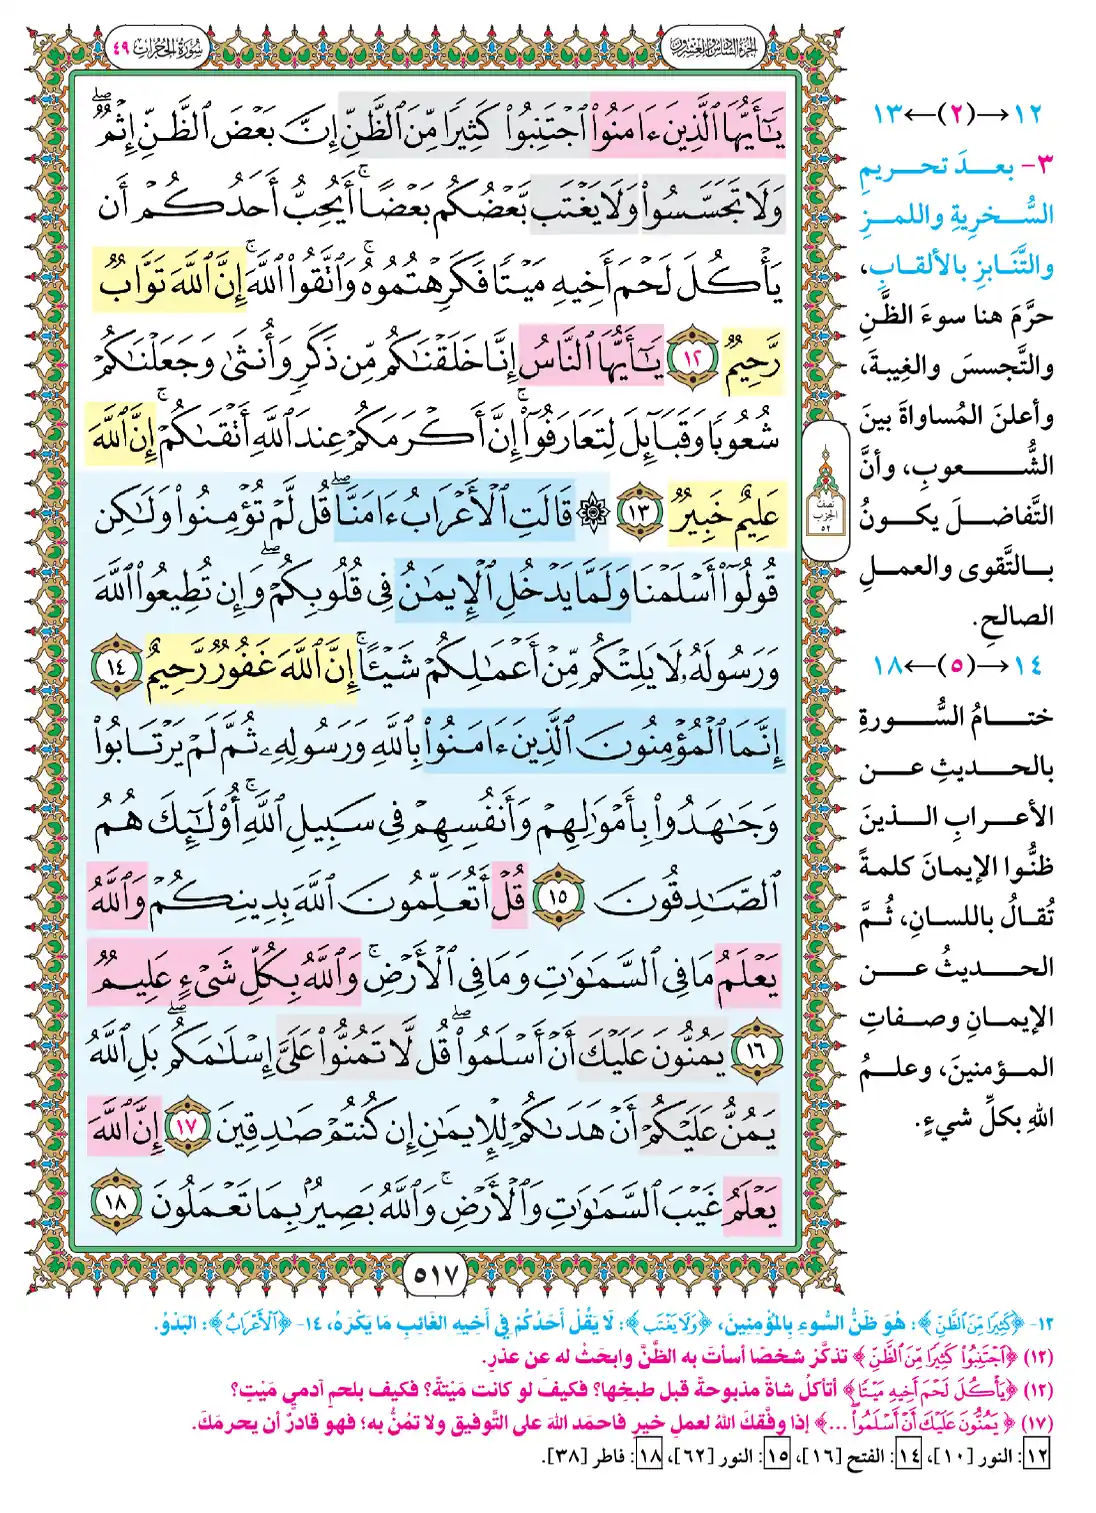 سُورَةُ الحُجُرَات ٤٩
الجزء السادس والعشرون
يَٰٓأَيُّهَا ٱلَّذِينَ ءَامَنُواْ ٱجۡتَنِبُواْ كَثِيرٗا مِّنَ ٱلظَّنِّ إِنَّ بَعۡضَ ٱلظَّنِّ إِثۡمٞۖ
وَلَا تَجَسَّسُواْ وَلَا يَغۡتَب بَّعۡضُكُم بَعۡضًاۚ أَيُحِبُّ أَحَدُكُمۡ أَن
يَأۡكُلَ لَحۡمَ أَخِيهِ مَيۡتٗا فَكَرِهۡتُمُوهُۚ وَٱتَّقُواْ ٱللَّهَۚ إِنَّ ٱللَّهَ تَوَّابٞ
رَّحِيمٞ ١٢ يَٰٓأَيُّهَا ٱلنَّاسُ إِنَّا خَلَقۡنَٰكُم مِّن ذَكَرٖ وَأُنثَىٰ وَجَعَلۡنَٰكُمۡ
شُعُوبٗا وَقَبَآئِلَ لِتَعَارَفُوٓاْۚ إِنَّ أَكۡرَمَكُمۡ عِندَ ٱللَّهِ أَتۡقَىٰكُمۡۚ إِنَّ ٱللَّهَ
عَلِيمٌ خَبِيرٞ ١٣ ۞ قَالَتِ ٱلۡأَعۡرَابُ ءَامَنَّاۖ قُل لَّمۡ تُؤۡمِنُواْ وَلَٰكِن
قُولُوٓاْ أَسۡلَمۡنَا وَلَمَّا يَدۡخُلِ ٱلۡإِيمَٰنُ فِي قُلُوبِكُمۡۖ وَإِن تُطِيعُواْ ٱللَّهَ
وَرَسُولَهُۥ لَا يَلِتۡكُم مِّنۡ أَعۡمَٰلِكُمۡ شَيۡـًٔاۚ إِنَّ ٱللَّهَ غَفُورٞ رَّحِيمٌ ١٤
إِنَّمَا ٱلۡمُؤۡمِنُونَ ٱلَّذِينَ ءَامَنُواْ بِٱللَّهِ وَرَسُولِهِۦ ثُمَّ لَمۡ يَرۡتَابُواْ
وَجَٰهَدُواْ بِأَمۡوَٰلِهِمۡ وَأَنفُسِهِمۡ فِي سَبِيلِ ٱللَّهِۚ أُوْلَٰٓئِكَ هُمُ
ٱلصَّٰدِقُونَ ١٥ قُلۡ أَتُعَلِّمُونَ ٱللَّهَ بِدِينِكُمۡ وَٱللَّهُ
يَعۡلَمُ مَا فِي ٱلسَّمَٰوَٰتِ وَمَا فِي ٱلۡأَرۡضِۚ وَٱللَّهُ بِكُلِّ شَيۡءٍ عَلِيمٞ
١٦ يَمُنُّونَ عَلَيۡكَ أَنۡ أَسۡلَمُواْۖ قُل لَّا تَمُنُّواْ عَلَيَّ إِسۡلَٰمَكُمۖ بَلِ ٱللَّهُ
يَمُنُّ عَلَيۡكُمۡ أَنۡ هَدَىٰكُمۡ لِلۡإِيمَٰنِ إِن كُنتُمۡ صَٰدِقِينَ ١٧ إِنَّ ٱللَّهَ
يَعۡلَمُ غَيۡبَ ٱلسَّمَٰوَٰتِ وَٱلۡأَرۡضِۚ وَٱللَّهُ بَصِيرُۢ بِمَا تَعۡمَلُونَ ١٨
نصف
الحزب
٥٢
٥١٧
١٢→(٢)←١٣
٣- بعدَ تحريمِ
السُّخريةِ واللمزِ
والتَّنَابزِ بالألقابِ،
حرَّمَ هنا سوءَ الظَّنِ
والتَّجسسَ والغِيبةَ،
وأعلنَ المُساواةَ بينَ
الشُّعوبِ، وأنَّ
التَّفاضلَ يكونُ
بالتَّقوى والعملِ
الصالحِ.
١٤→(٥)←١٨
ختامُ السُّورةِ
بالحديثِ عن
الأعرابِ الذينَ
ظنُّوا الإيمانَ كلمةً
تُقالُ باللسانِ، ثُمَّ
الحديثُ عن
الإيمانِ وصفاتِ
المؤمنينَ، وعلمُ
اللهِ بكلِّ شيءٍ.
١٢- ﴿كَثِيرًا مِّنَ ٱلظَّنِّ﴾: هُوَ ظَنُّ السُّوءِ بِالمُؤْمِنِينَ، ﴿وَلَا يَغْتَب﴾: لَا يَقُلْ أَحَدُكُمْ فِي أَخِيهِ الغَائِبِ مَا يَكْرَهُ، ١٤- ﴿ٱلْأَعْرَابُ﴾: البَدْوُ.
(١٢) ﴿ٱجْتَنِبُوا۟ كَثِيرًا مِّنَ ٱلظَّنِّ﴾ تذكَّرْ شخصًا أسأتَ به الظَّنَّ وابحَثْ له عن عذرٍ.
(١٢) ﴿يَأْكُلَ لَحْمَ أَخِيهِ مَيْتًا﴾ أتأكلُ شاةً مذبوحةً قبل طبخِها؟ فكيفَ لو كانت مَيْتةً؟ فكيف بلحمِ آدميٍ مَيْتٍ؟
(١٧) ﴿يَمُنُّونَ عَلَيْكَ أَنْ أَسْلَمُوا۟ ...﴾ إذا وفَّقكَ اللهُ لعملِ خيرٍ فاحمَدِ اللهَ على التَّوفيقِ ولا تمُنُّ به؛ فهو قادرٌ أن يحرمَكَ.
١٢: النور [١٠]، ١٤: الفتح [١٦]، ١٥: النور [٦٢]، ١٨: فاطر [٣٨].